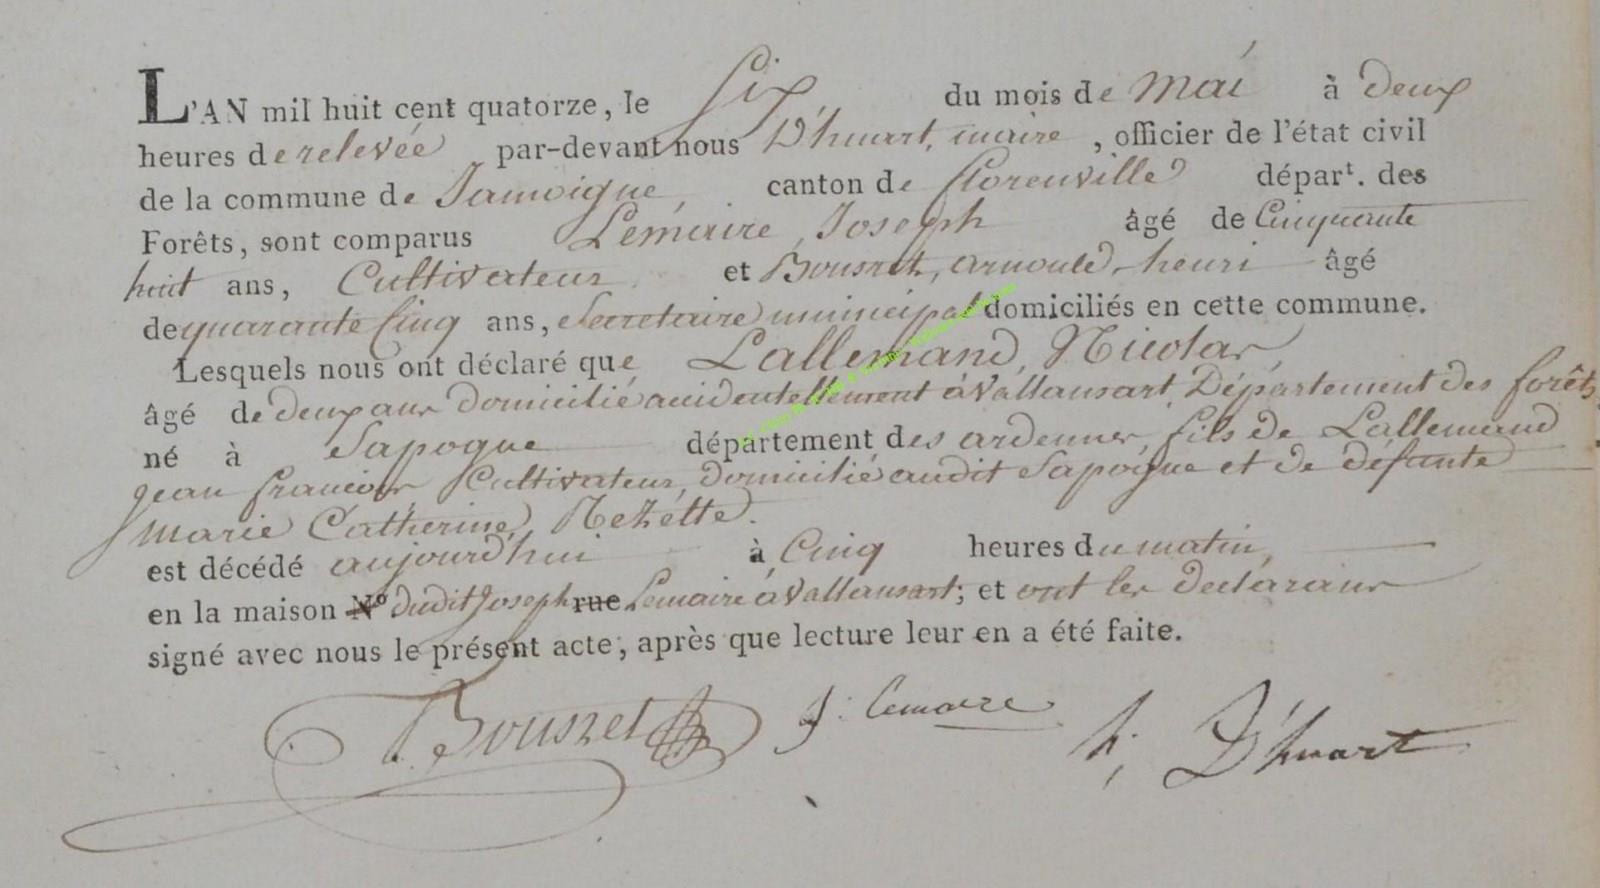 L'AN mil huit cent quatorze, le Six du mois de Mai à deux
heures de relevée par-devant nous D'huart, maire, officier de l'état civil
de la commune de Jamoigne, canton de florenville départ. des
Forêts, sont comparus Lemaire, Joseph âgé de Cinquante
huit ans, Cultivateur et Bousret, arnould, henri âgé
de quarante Cinq ans, Secretaire municipal domiciliés en cette commune.
Lesquels nous ont déclaré que Lallemand, Nicolas,
âgé de deux ans domicilié accidentellement à Vallansart, Département des forêts,
né à Sapogne département des ardennes, fils de Lallemand
jean françois, Cultivateur, domicilié audit Sapogne et de défunte
Marie Catherine,
est décédé aujourd'hui à Cinq heures du matin,
en la maison N° dudit Joseph rue Lemaire à Vallansart; et ont les declarans
signé avec nous le présent acte, après que lecture leur en a été faite.
Bousret J: Lemaire h: D'huart